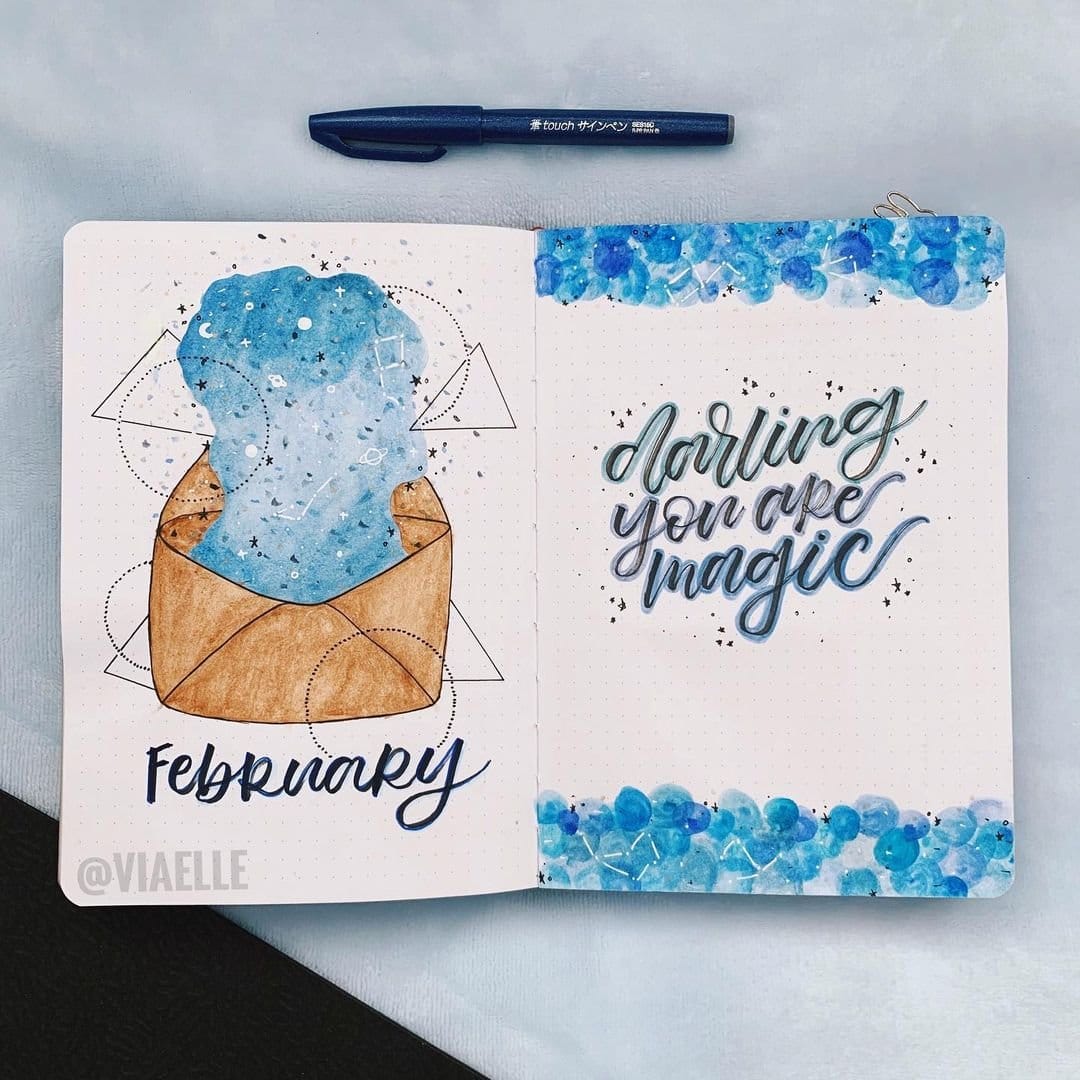 touch サインペン SES15C
February
@VIAELLE
darling
you are
magic